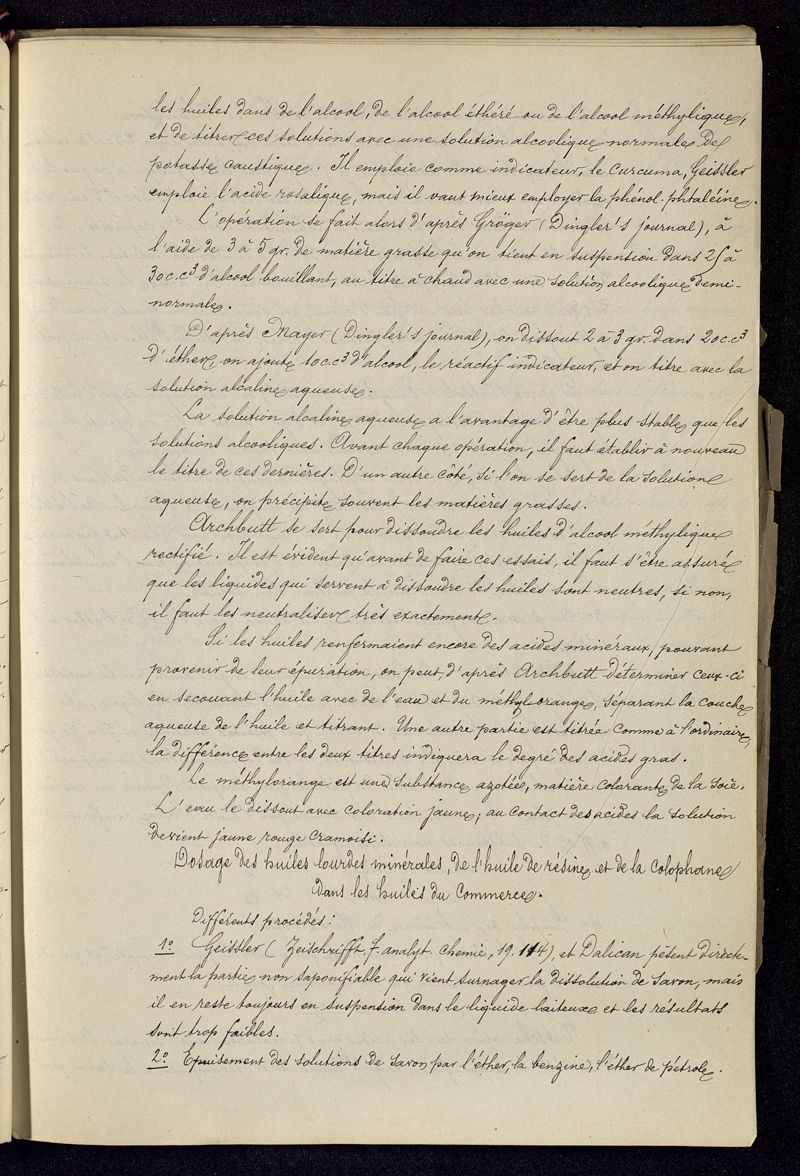 les huiles dans de l'alcool, de l'alcool éthéré ou de l'alcool méthylique,
et de titrer ces solutions avec une solution alcoolique normale de
potasse caustique. Il emploie comme indicateur, le curcuma, Geissler
emploie l'acide rosalique, mais il vaut mieux employer la phénol-phtaléine.
L'opération se fait alors d'après Gröger (Dingler's journal), à
l'aide de 3 à 5 gr. de matière grasse qu'on tient en suspention dans 25 à
30 c.c³ d'alcool bouillant, au titre à chaud avec une solution alcoolique demi-
normale.
D'après Mayer (Dingler's journal), on dissout 2 à 3 gr. dans 20 c.c³
d'éther, on ajoute 10 c.c³ d'alcool, le réactif indicateur, et on titre avec la
solution alcaline aqueuse.
La solution alcaline aqueuse a l'avantage d'être plus stable que les
solutions alcooliques. Avant chaque opération, il faut établir à nouveau
le titre de ces dernières. D'un autre côté, si l'on se sert de la solution
aqueuse, on précipite souvent les matières grasses.
Archbutt se sert pour dissoudre les huiles d'alcool méthylique
rectifié. Il est évident qu'avant de faire ces essais, il faut s'être assuré
que les liquides qui servent à dissoudre les huiles sont neutres, si non,
il faut les neutraliser très exactement.
Si les huiles renfermaient encore des acides minéraux, pouvant
provenir de leur épuration, on peut, d'après Archbutt déterminer ceux-ci
en secouant l'huile avec de l'eau et du méthylorange, séparant la couche
aqueuse de l'huile et titrant. Une autre partie est titrée comme à l'ordinaire,
la différence entre les deux titres indiquera le degré des acides gras.
Le méthylorange est une substance azotée, matière colorante de la soie.
L'eau le dissout avec coloration jaune; au contact des acides la solution
devient jaune rouge cramoisi.
Dosage des huiles lourdes minérales, de l'huile de résine et de la colophane
dans les huiles du Commerce.
Différents procédés:
1º Geissler (Zeischrifft f. analyt. Chemie, 19.114), et Dalican pèsent directe-
ment la partie non saponifiable qui vient surnager la dissolution de savon, mais
il en reste toujours en suspension dans le liquide laiteux et les résultats
sont trop faibles.
2º Epuisement des solutions de savon par l'éther, la benzine, l'éther de pétrole.